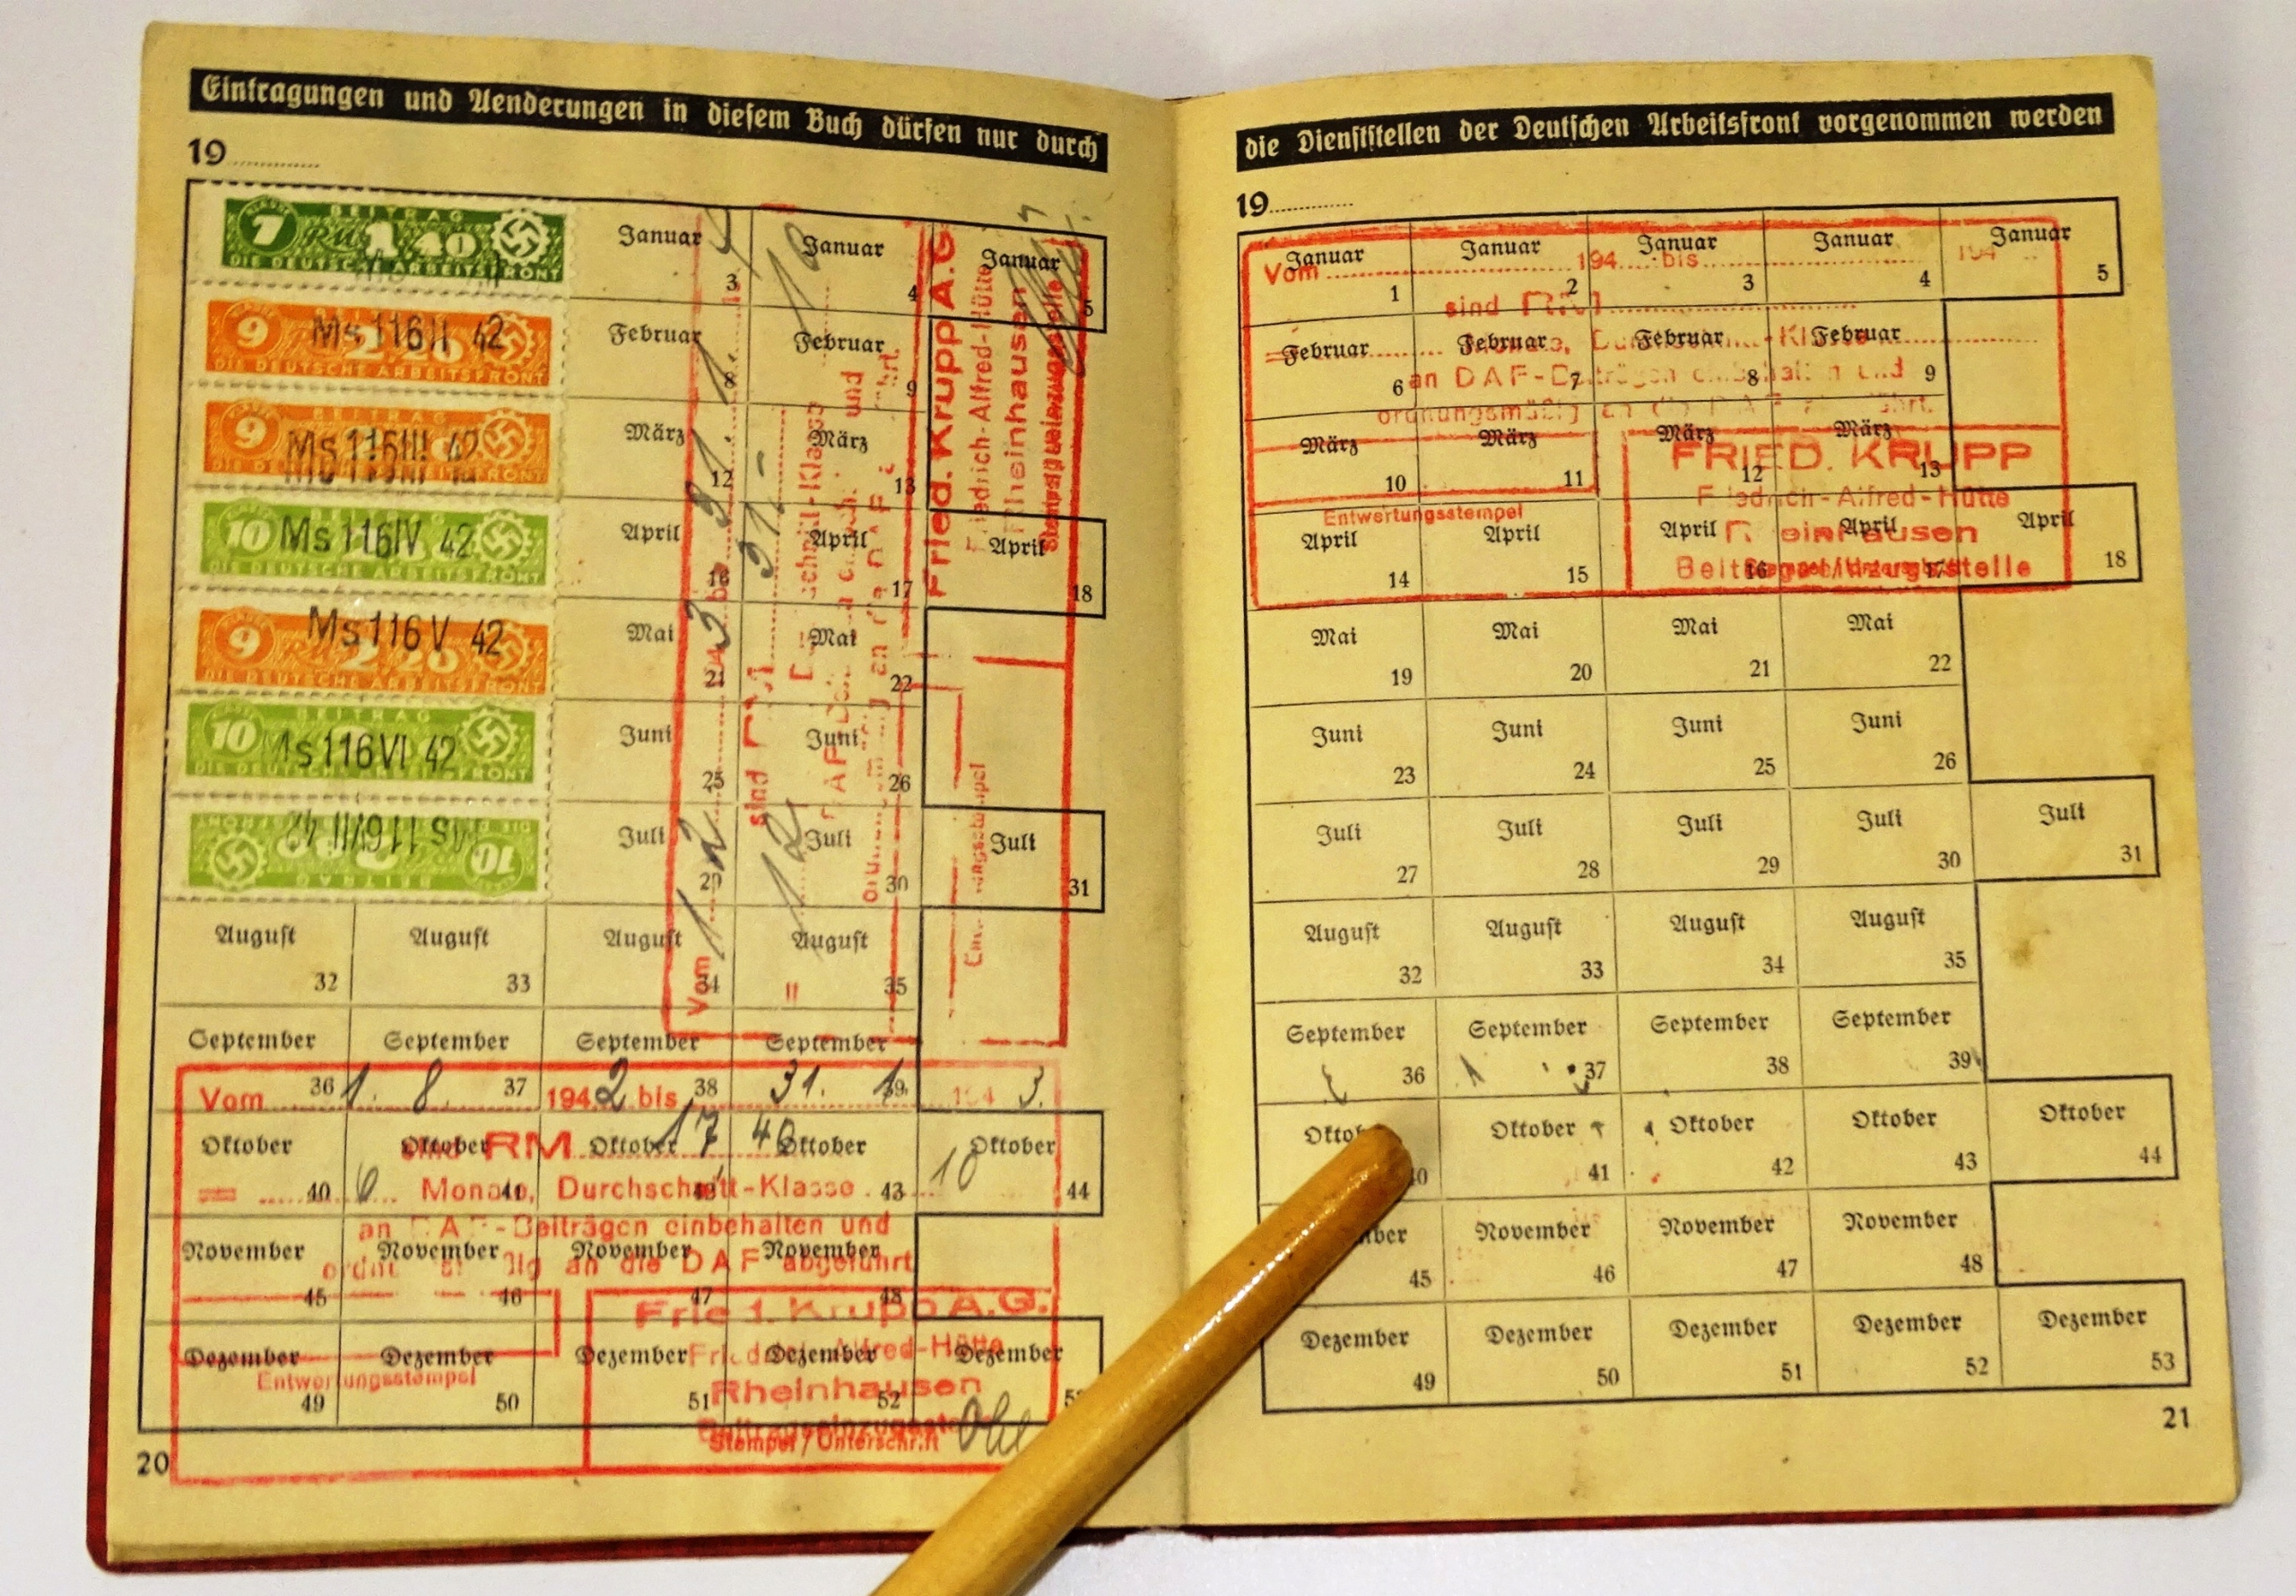 Eintragungen und Aenderungen in diesem Buch dürfen nur durch
19
7 BEITRAG
RM 1.40
DIE DEUTSCHE ARBEITSFRONT
Januar 3
Januar 4
Januar 5
9 Ms 116 II 42
DIE DEUTSCHE ARBEITSFRONT
Februar 8
Februar 9
9 Ms 116 III 42
DIE DEUTSCHE ARBEITSFRONT
März 12
März 13
10 Ms 116 IV 42
DIE DEUTSCHE ARBEITSFRONT
April 16
April 17
April 18
9 Ms 116 V 42
DIE DEUTSCHE ARBEITSFRONT
Mai 21
Mai 22
10 BEITRAG
Ms 116 VI 42
DIE DEUTSCHE ARBEITSFRONT
Juni 25
Juni 26
10 BEITRAG
Ms 116 VII 42
Juli 29
Juli 30
Juli 31
August 32
August 33
August 34
August 35
September 36
September 37
September 38
September 39
Oktober 40
Oktober 41
Oktober
Oktober 43
Oktober 44
November 45
November 46
November 47
November 48
Dezember 49
Dezember 50
Dezember 51
Dezember 52
Dezember
Vom
sind RM
Fried. Krupp A.G.
Friedrich-Alfred-Hütte
Rheinhausen
Vom 1. 8. 1942 bis 31. 1. 194 3.
sind RM 17 40
= 6 Monate, Durchschnitt-Klasse 10
an DAF-Beiträgen einbehalten und
ordnungsmäßig an die DAF abgeführt
Entwertungsstempel
Fried. Krupp A.G.
Friedrich-Alfred-Hütte
Rheinhausen
Beitragseinzugsstelle
Stempel/Unterschrift
20
die Dienststellen der Deutschen Arbeitsfront vorgenommen werden
19
Januar 1
Januar 2
Januar 3
Januar 4
Januar 5
Februar 6
Februar 7
Februar 8
Februar 9
März 10
März 11
März 12
März 13
April 14
April 15
April 16
April 17
April 18
Mai 19
Mai 20
Mai 21
Mai 22
Juni 23
Juni 24
Juni 25
Juni 26
Juli 27
Juli 28
Juli 29
Juli 30
Juli 31
August 32
August 33
August 34
August 35
September 36
September 37
September 38
September 39
Oktob 40
Oktober 41
Oktober 42
Oktober 43
Oktober 44
mber 45
November 46
November 47
November 48
Dezember 49
Dezember 50
Dezember 51
Dezember 52
Dezember 53
Vom 194 bis 194
sind RM
an DAF-Beiträgen einbehalten und
ordnungsmäßig an die DAF abgeführt.
Entwertungsstempel
FRIED. KRUPP
Friedrich-Alfred-Hütte
Rheinhausen
Beitragseinzugsstelle
21